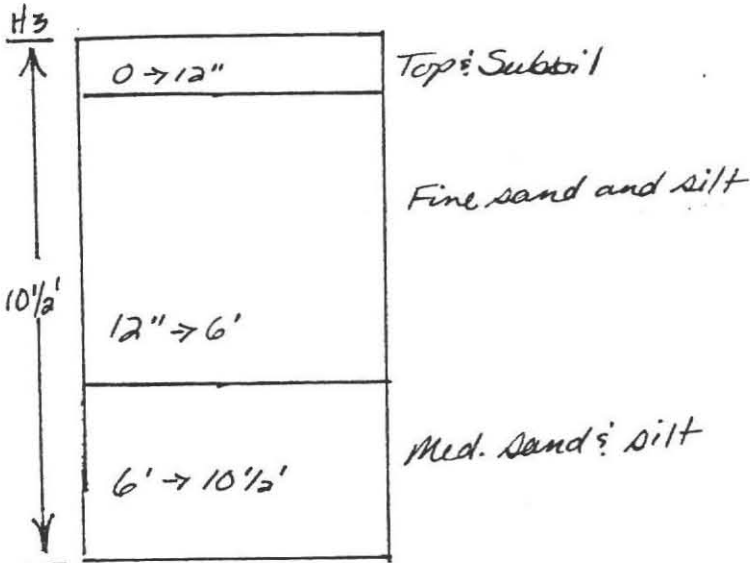 H3
0 → 12" Top & Subsoil
Fine sand and silt
10 1/2'
12" → 6'
Med. Sand & silt
6' → 10 1/2'